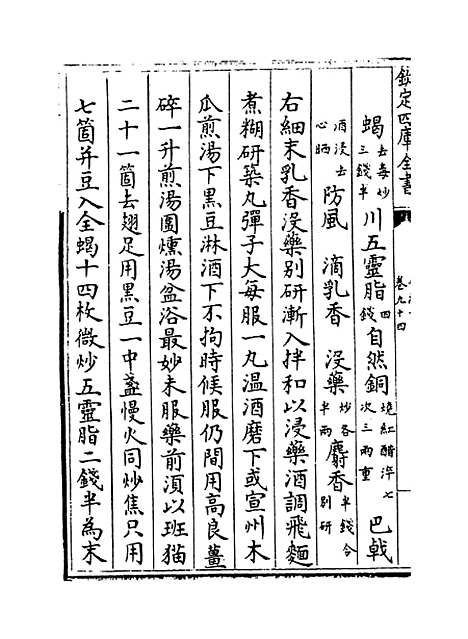 欽定四庫全書
卷九十四
蝎去毒炒三錢半川五靈脂四錢自然銅燒紅醋淬七次三兩重巴戟
酒浸去心晒防風 滴乳香 沒藥炒各半兩麝香半錢合別研
右細末乳香沒藥別研漸入拌和以浸藥酒調飛麵
煮糊研築丸彈子大每服一丸温酒磨下或宣州木
瓜煎湯下黒豆淋酒下不拘時候服仍間用高良薑
碎一升煎湯圍燻湯盆浴最妙未服藥前須以班猫
二十一箇去翅足用黒豆一中盞慢火同炒焦只用
七箇并豆入全蝎十四枚微炒五靈脂二錢半為末